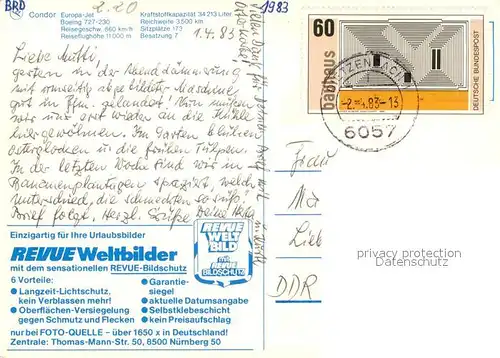 BRD
2.20
1983
Condor Europa-Jet
Boeing 727-230
Reisegeschw. 860 km/h
Reiseflughöhe 11000 m
Kraftstoffkapazität 34 213 Liter
Reichweite 3500 km
Sitzplätze 173
Besatzung 7
1.4.83
Vielen Dank für
Liebe Mutti!
gestern in der Abenddämmerung
mit umseitig abgebildeter Maschine
gut in Ffm. gelandet! Nun müssen
wir uns erst wieder an die Kühle
hier gewöhnen. Im Garten blühen
Osterglocken u. die frühen Tulpen.
In der letzten Woche sind wir in
Bananenplantagen spaziert, welch
Unterschied, die schmeckten so süß!
Brief folgt. Herzl. Grüße Deine
60
bauhaus
DEUTSCHE BUNDESPOST
-2.-4.83-13
6057
Frau
Lieb
DDR
privacy protection
Datenschutz
Einzigartig für Ihre Urlaubsbilder
REVUE Weltbilder
mit dem sensationellen REVUE-Bildschutz
6 Vorteile:
● Langzeit-Lichtschutz,
kein Verblassen mehr!
● Oberflächen-Versiegelung
gegen Schmutz und Flecken
● Garantie-
siegel
● aktuelle Datumsangabe
● Selbstklebeschicht
● kein Preisaufschlag
REVUE
WELT
BILD
mit
REVUE
BILDSCHUTZ
nur bei FOTO-QUELLE – über 1650 x in Deutschland!
Zentrale: Thomas-Mann-Str. 50, 8500 Nürnberg 50